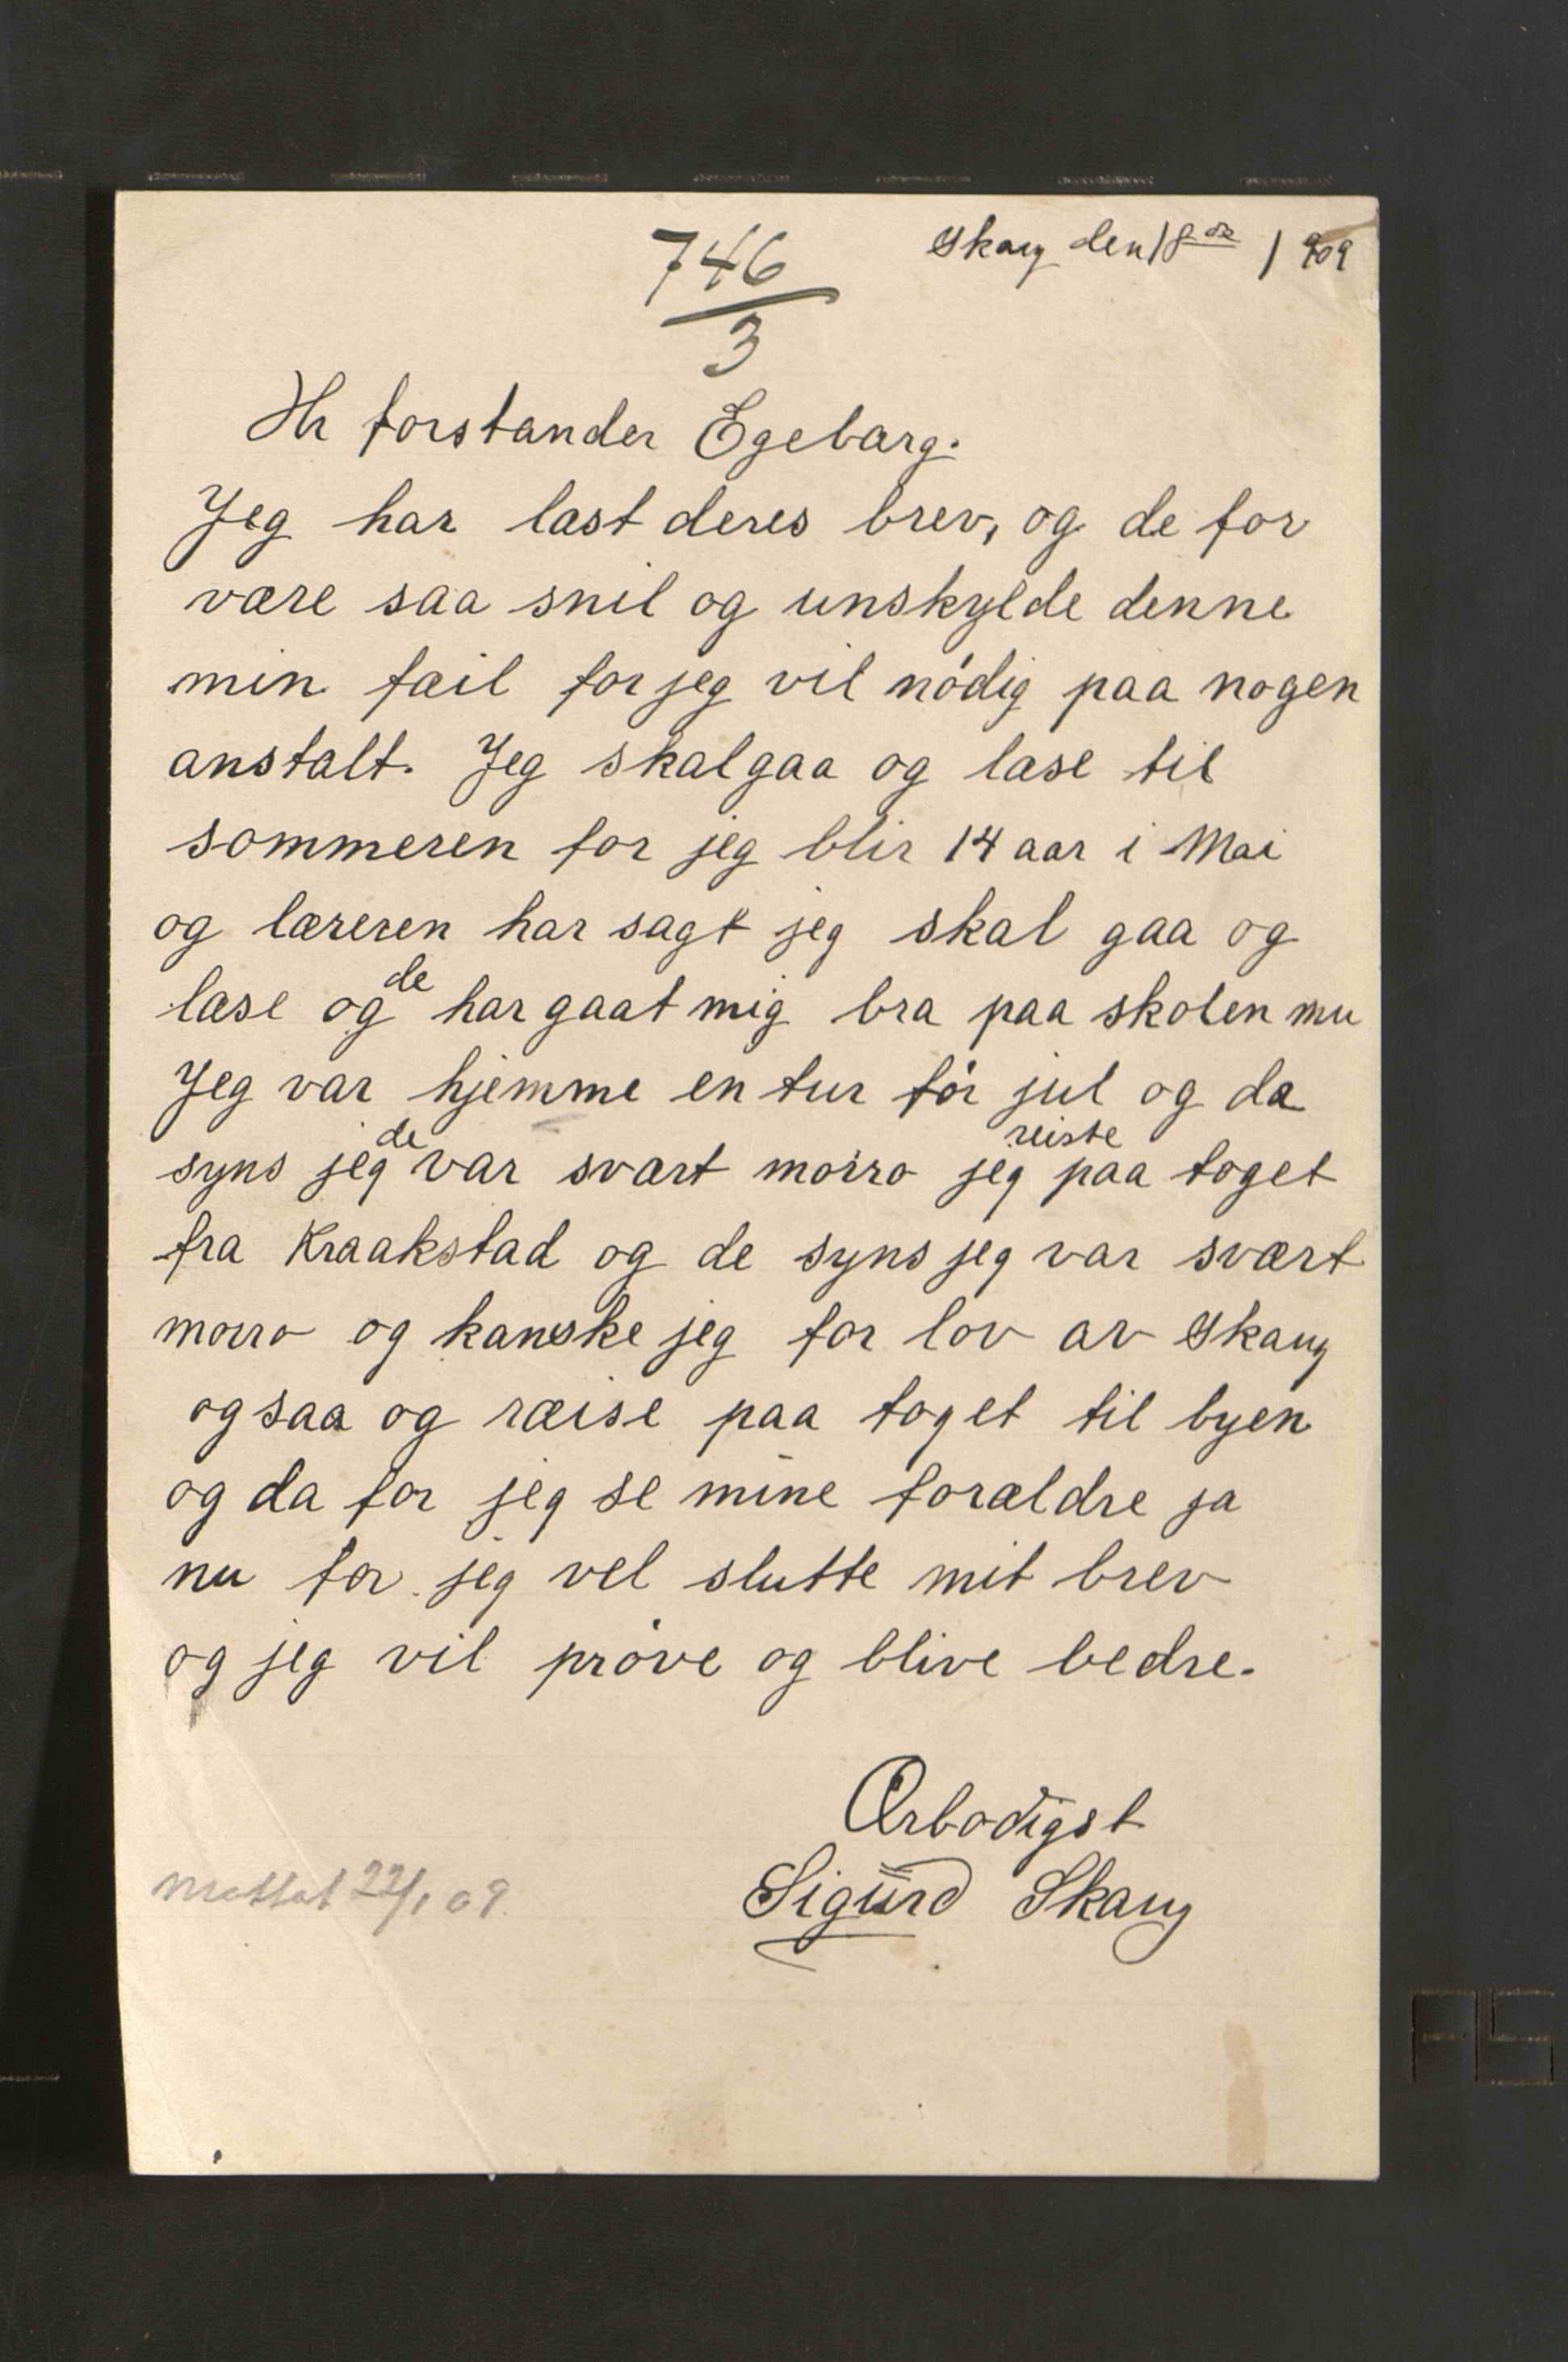 746
3
Skaug den 18de / 909
Hr forstander Egebærg.
Jeg har læst deres brev, og de for
være saa snil og unskylde denne
min fæil for jeg vil nödig paa nogen
anstalt. Jeg skal gaa og læse til
sommeren for jeg blir 14 aar i Mai
og læreren har sagt jeg skal gaa og
læse og de har gaat mig bra paa skolen nu
Jeg var hjemme en tur för jul og da
syns jeg de var svært moirro jeg reiste paa toget
fra Kraakstad og de syns jeg var svært
moirro og kanske jeg for lov av Skaug
ogsaa og ræise paa toget til byen
og da for jeg se mine forældre ja
nu for jeg vel slutte mit brev
og jeg vil pröve og blive bedre.
Ærbodigst
Sigurd Skaug
mottat 22/1 09.